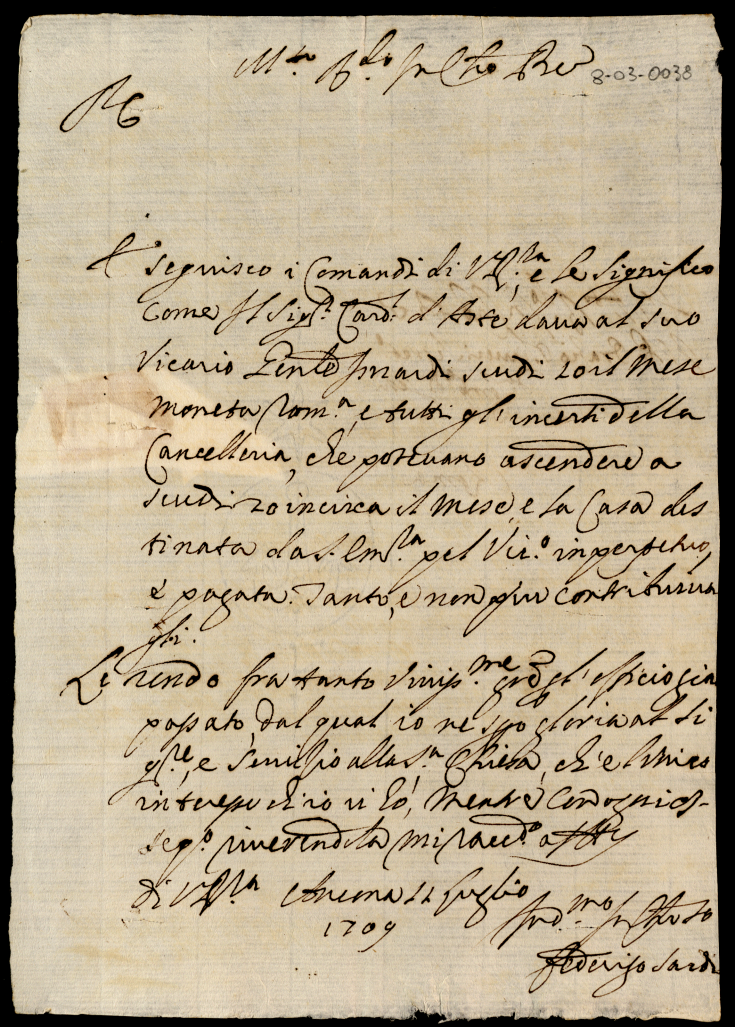 Mto Rdo in Chro Pre
8-03-0038
PC
Eseguisco i Comandi di V. Rza, e le significo
Come Il Sigr. Cardl. d'Aste dava al suo
Vicario scudi 20 il Mese
moneta Roma, e tutti gl'incerti della
Cancelleria, che potevano ascendere a
scudi 20 incirca il mese, e la Casa des
tinata da S. Emza pel Vico in perpetuo,
è pagata. Tanto, e non più contribuiva
gli.
Le rendo fra tanto vivissme grazie gl'officio già
passato, dal qual io ne spo gloria al Si
gre, e servizio alla Sa Chiesa, ch'è l'unico
interesse ch'io vi hò, mentre con ogni os-
sego riverendola mi raccdo
di V. Rza Ancona 11 Luglio
1709
in Chro
Federigo Sardi